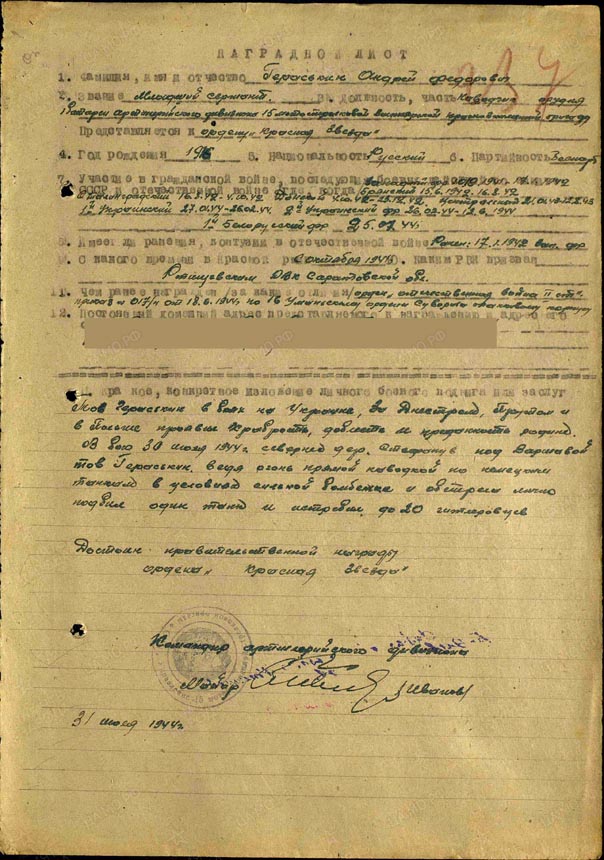 НАГРАДНОЙ ЛИСТ
1. Фамилия, имя и отчество Гераськин Андрей Федорович
2. Звание Младший сержант. 3. Должность, часть Наводчик орудия
батареи артиллерийского дивизиона 15 мотострелковой бригады
Представляется к ордену "Красная Звезда"
4. Год рождения 5. Национальность Русский 6. Партийность
7. Участие в гражданской войне, последующих боевых действиях
СССР и отечественной войне /где, когда/ Брянский 15.6.1942- 16.8.42
Сталинградский 16.8.42-4.10.42 Донской 4.10.42- Центральный
1й Украинский 27.01.44-26.02.44. 2й Украинский фр 26.02.44-12.6.1944
1й Белорусский фр 25.07.44г.
8. Имеет ли ранения, контузии в отечественной войне Ранен: 17.1.1942
9. С какого времени в Красной октября каким РВК призван
Ртищевским РВК Саратовской обл.
11. Чем ранее награжден /за какие отличия/ орден "Отечественная война II ст"
приказ № 017/н от 18.6.1944г по 16 Уманскому ордена Суворова танковому корпусу
12. Постоянный домашний адрес представляемого к награждению и адрес его
1. Краткое, конкретное изложение личного боевого подвига или заслуг
Тов Гераськин в боях на Украине, за Днестром, Прутом и
в Польше проявил храбрость, доблесть и преданность родине.
В бою 30 июля 1944г севернее дер. Стефанув под Варшавой
тов Гераськин. Ведя огонь прямой наводкой по немецким
танкам в условиях сильной бомбежки и обстрела лично
подбил один танк и истребил до 20 гитлеровцев
Достоин правительственной награды
ордена "Красная Звезда"
Командир артиллерийского дивизиона
Майор /Иванов/
31 июля 1944г.